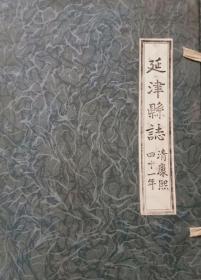 延津縣誌
清康熙
四十一年